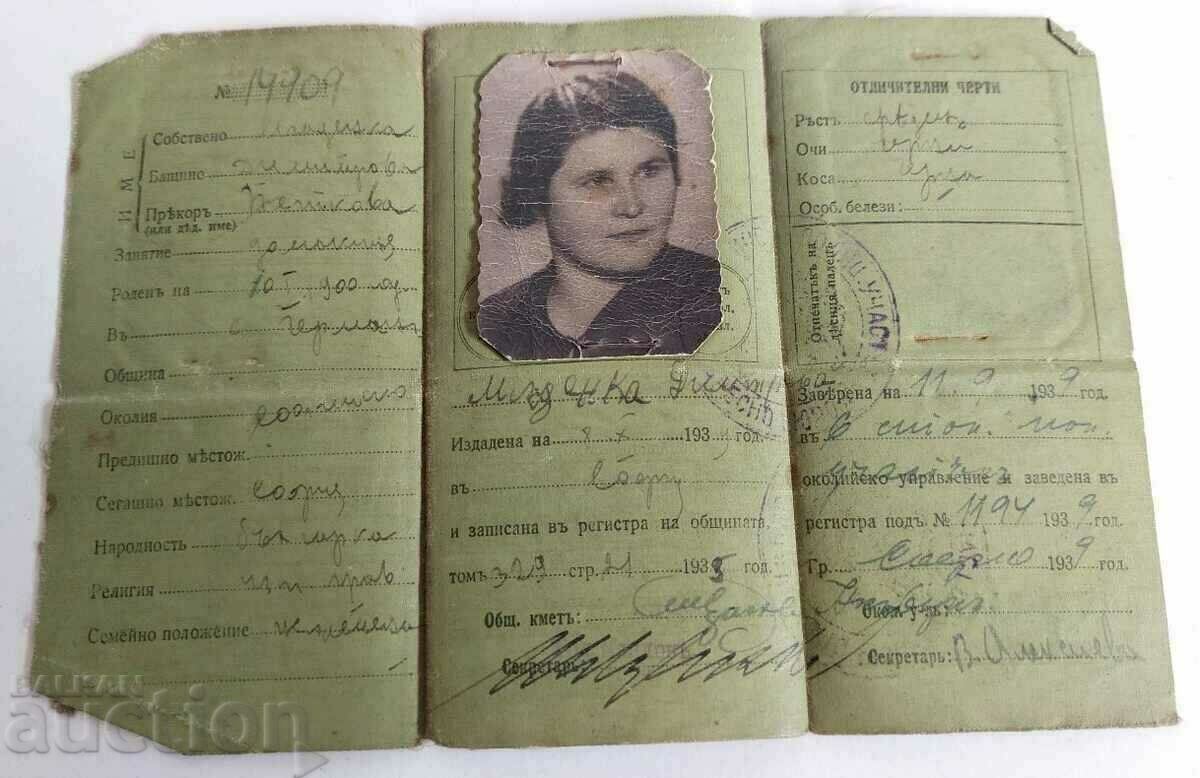 № 14409
ИМЕ
Собствено
Бащино
Прѣкоръ Петкова
(или дѣд. име)
Занятие домакиня
Роденъ на 900 год
Въ с. Герман
Община
Околия Софийско
Предишно мѣстож.
Сегашно мѣстож. София
Народность българка
Религия изт. прав
Семейно положение женена
Младенка Димитрова
Издадена на 8 X 193 год.
въ София
и записана въ регистра на общината,
томъ 329 стр. 21 1935 год.
Общ. кметъ:
Секретарь:
ОТЛИЧИТЕЛНИ ЧЕРТИ
Ръстъ срѣденъ
Очи черни
Коса черни
Особ. белези:
Отпечатъкъ на
дѣсния палецъ
УЧАСТ
Заверена на 11.9 1939 год.
въ 6 стол. пол.
околийско управление и заведена въ
регистра подъ № 1194 1939 год.
Гр. София 1939
Окол. у-къ:
Секретарь: В. Алексиева
БАЛКАН
auction